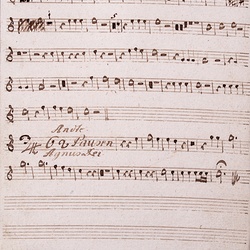 Andte
62 Pausen
Agnus Dei